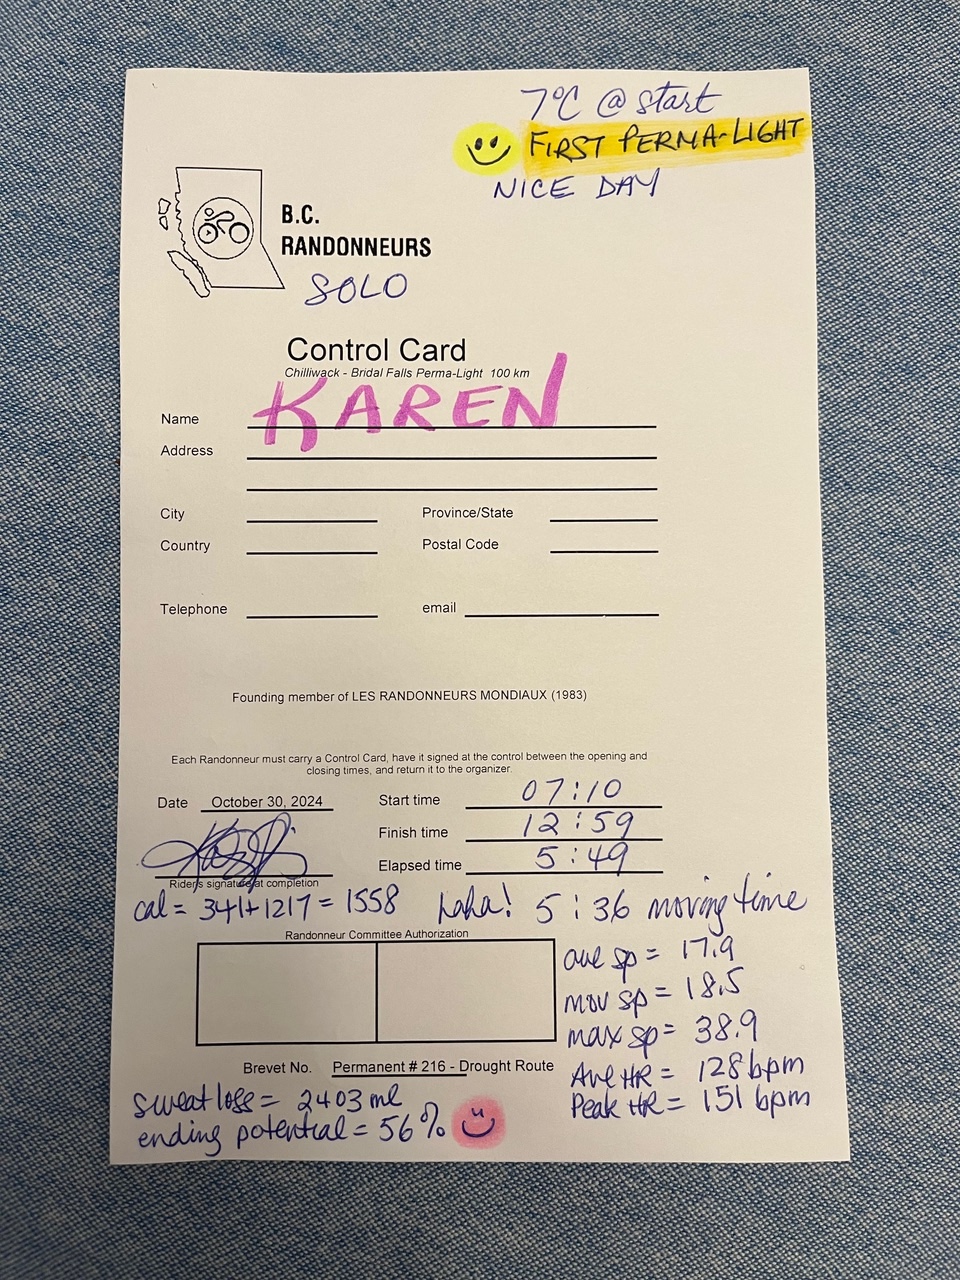 7°C @ start
FIRST PERMA-LIGHT
NICE DAY
B.C.
RANDONNEURS
SOLO
Control Card
Chilliwack - Bridal Falls Perma-Light 100 km
Name KAREN
Address
City Province/State
Country Postal Code
Telephone email
Founding member of LES RANDONNEURS MONDIAUX (1983)
Each Randonneur must carry a Control Card, have it signed at the control between the opening and
closing times, and return it to the organizer.
Date October 30, 2024 Start time 07:10
Finish time 12:59
Elapsed time 5:49
Rider's signature at completion
cal = 341+1217 = 1558 haha! 5:36 moving time
Randonneur Committee Authorization
ave sp = 17.9
mov sp = 18.5
max sp = 38.9
Brevet No. Permanent # 216 - Drought Route
Ave HR = 128 bpm
Peak HR = 151 bpm
sweat loss = 2403 ml
ending potential = 56%